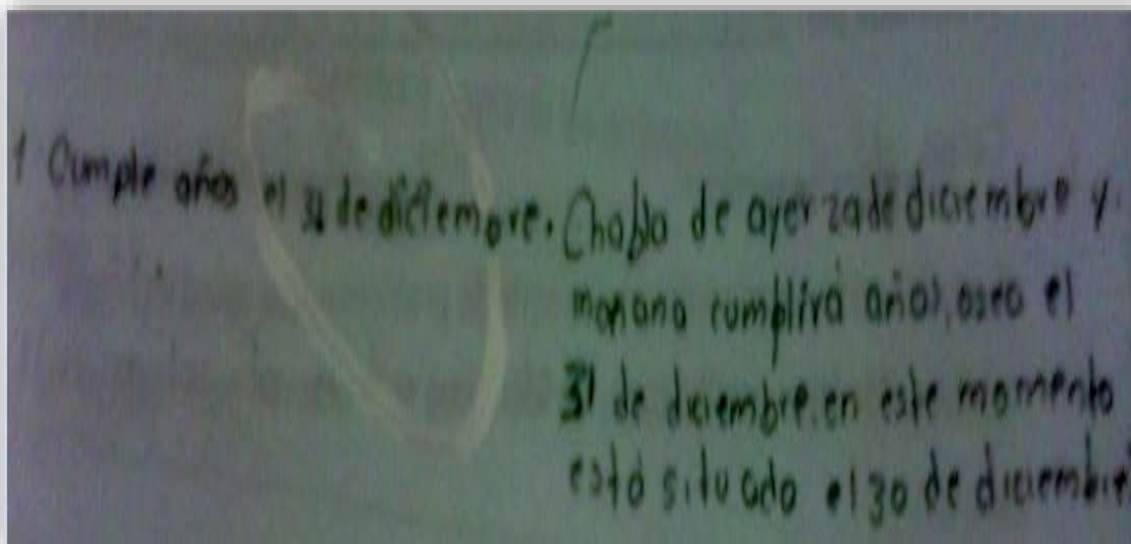 1 Cumple años el 31 de diciembre. Chabla de ayer 29 de diciembre y
mañana cumplirá años, osea el
31 de diciembre. en este momento
está situado el 30 de diciembre